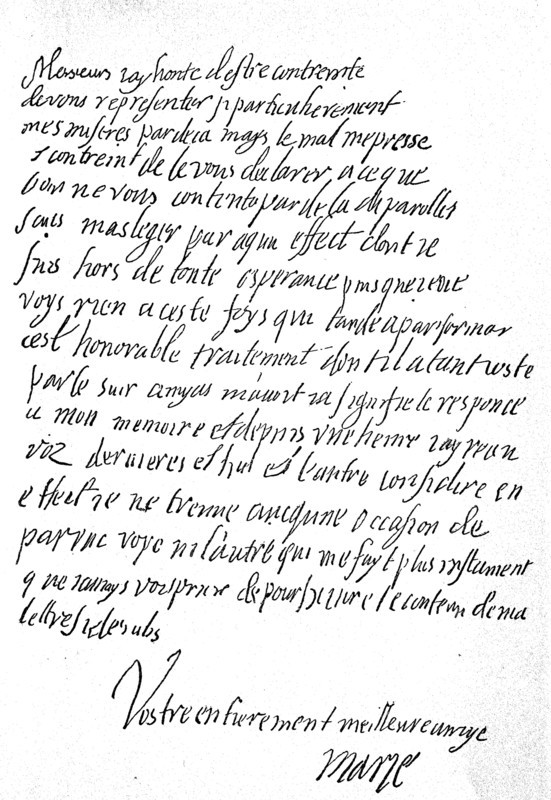 Messieurs iay honte destre contreinte
de vous representer si particulierement
mes miseres par deca mays le mal me presse
& contreint de le vous declarer, a ce que
lon ne vous contente par de la de parolles
sans masleger par aqun effect dont ie
suis hors de toute esperance puis que ie ne
voys rien a ceste foys qui tande a parformer
cest honorable traitement dont il a tant
par le sieur amyas mavoit ia signifie le responce
a mon memoire et depuis une heure iay receu
voz dernieres et lun et lautre considere en
effect ie ne treuve aucqune occasion de
par une voye ni lautre qui me fayt plus instament
que iamays vous prier de poursuivre le contenu de ma
lettre
Vostre entierement meilleure amye
Marie